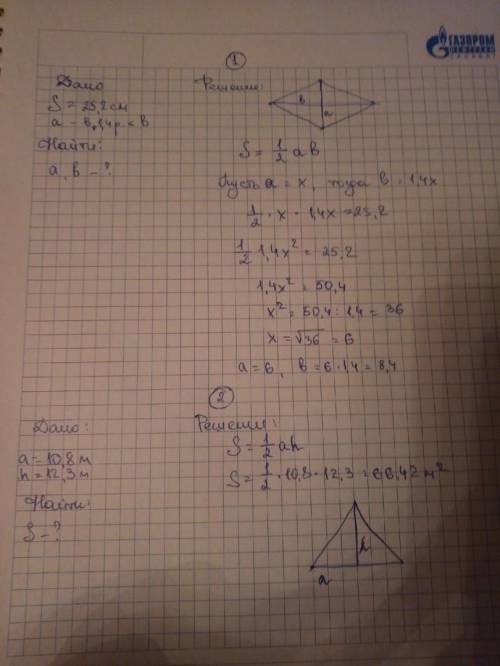 ГАЗПРОМ
1
Дано
S = 25,2 см
a - в 1,4 р. < в
Найти:
a, в - ?
Решение:
в
a
S = 1/2 a в
Пусть a = x, тогда в = 1,4x
1/2 · x · 1,4x = 25,2
1/2 1,4x² = 25,2
1,4x² = 50,4
x² = 50,4 : 1,4 = 36
x = √36 = 6
a = 6, в = 6 · 1,4 = 8,4
2
Дано:
a = 10,8 м
h = 12,3 м
Найти:
S - ?
Решении:
S = 1/2 ah
S = 1/2 · 10,8 · 12,3 = 66,42 м²
h
a